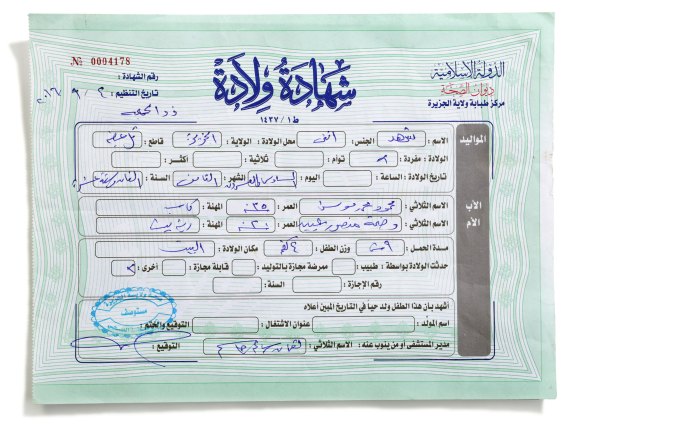 № 0004178
الدولة الإسلامية
ديوان الصحة
مركز طبابة ولاية الجزيرة
شهادة ولادة
ط١ / ١٤٣٧
رقم الشهادة :
تاريخ التنظيم : ٢ / ٩ / ٢٠١٦
ذو الحجة
المواليد
الاسم : شهد الجنس : انثى محل الولادة : الولاية : الجزيرة قاطع :
الولادة : مفردة : توأم : ثلاثية : أكثر :
تاريخ الولادة : الساعة : اليوم : السادس والعشرون الشهر : الثامن السنة :
الأب
الاسم الثلاثي : محمود العمر : ٢٥ المهنة : كاسب
الأم
الاسم الثلاثي : منصور العمر : ٢٠ المهنة : ربة بيت
مدة الحمل : ٩ وزن الطفل : مكان الولادة : البيت
حدثت الولادة بواسطة : طبيب : ممرضة مجازة بالتوليد : قابلة مجازة : أخرى :
رقم الإجازة : السنة :
أشهد بأن هذا الطفل ولد حيا في التاريخ المبين أعلاه
اسم المولد : عنوان الاشتغال : التوقيع والختم :
مدير المستشفى أو من ينوب عنه : الاسم الثلاثي : التوقيع :
مستوصف